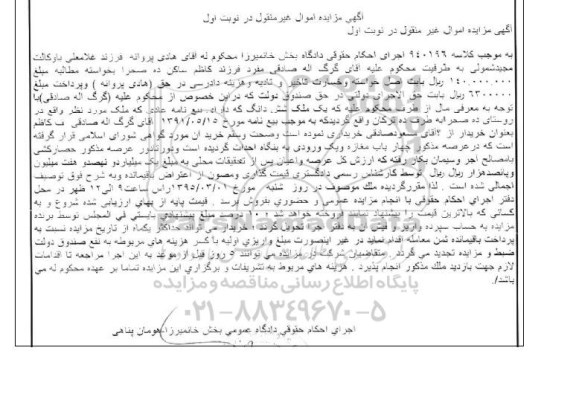 آگهی مزایده اموال غیرمنقول در نوبت اول
آگهی مزایده اموال غیر منقول در نوبت اول
به موجب کلاسه ۹۴۰۱۹۶ اجرای احکام حقوقی دادگاه بخش خانمیرزا محکوم له آقای هادی پروانه فرزند غلامعلی باوکالت
مجیدشمولی به طرفیت محکوم علیه آقای گرگ اله صادقی مفرد فرزند کاظم ساکن ده صحرا بخواسته مطالبه مبلغ
۱۴۰۰۰۰۰۰۰ ریال بابت اصل خواسته وخسارت تاخیر و تادیه و هزینه دادرسی در حق (هادی پروانه) وپرداخت مبلغ
۶۳۰۰۰۰۰ ریال بابت حق الاجرای دولتی در حق صندوق دولت که دراین خصوص از محکوم علیه (گرگ اله صادقی)با
توجه به معرفی مال از طرف محکوم علیه که یک ملک شش دانگ که دارای بیع نامه عادی که ملک مورد نظر واقع در
روستای ده صحرابه طرف ده ترکان واقع گردیدکه به موجب بیع نامه مورخ ۱۳۹۱/۰۵/۱۵ آقای گرگ اله صادقی ب کاظم
بعنوان خریدار از آقای مسعودصادقی خریداری نموده است وصحت وسقم خرید آن مورد گواهی شورای اسلامی قرار گرفته
است که درعرصه مذکور چهار باب مغازه ویک ورودی به بنگاه احداث گردیده است ودورتادور عرصه مذکور حصارکشی
بامصالح آجر وسیمان بکار رفته که ارزش کل عرصه واعیان پس از تحقیقات محلی به مبلغ یک میلیاردو نهصدو هفت میلیون
وپانصدهزار ریال ریال توسط کارشناس رسمی دادگستری قیمت گذاری ومصون از اعتراض باقیمانده وبه شرح فوق توصیف
اجمالی شده است . لذا مقررگردیده ملک موصوف در روز شنبه مورخ ۱۳۹۵/۰۳/۰۱راس ساعت ۹ الی۱۲ ظهر در محل
دفتر اجرای احکام حقوقی با انجام مزایده عمومی و حضوری بفروش برسد . قیمت پایه از بهای ارزیابی شده شروع و به
کسانی که بالاترین قیمت را پیشنهاد نمایند فروخته خواهد شد ۱۰ درصد مبلغ پیشنهادی بایستی فی المجلس توسط برنده
مزایده به حساب سپرده واریز و فیش آن به دفتر اجرا تحویل گردد . خریدار می تواند حداکثر یکماه از تاریخ مزایده نسبت به
پرداخت باقیمانده ثمن معامله اقدام نماید در غیر اینصورت مبلغ واریزی اولیه با کسر هزینه های مربوطه به نفع صندوق دولت
ضبط و مزایده تجدید می گردد . متقاضیان شرکت در مزایده می توانند ۵ روز قبل از موعد به این اجرا مراجعه تا اقدامات
لازم جهت بازدید ملک مذکور انجام پذیرد . هزینه های مربوط به تشریفات و برگزاری این مزایده تماما بر عهده محکوم له می
باشد/.
پایگاه اطلاع رسانی مناقصه و مزایده
۰۲۱-۸۸۳۴۹۶۷۰-۵
اجرای احکام حقوقی دادگاه عمومی بخش خانمیرزا-هومان پناهی